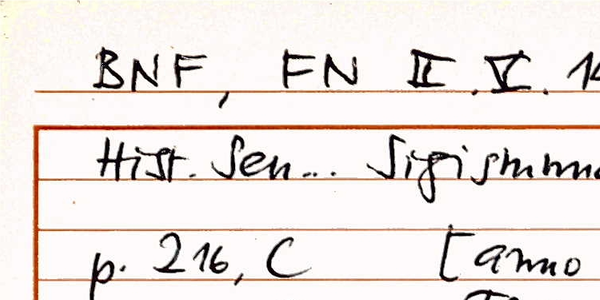 BNF, FN II.V. 14
Hist. Sen... Sigismun
p. 216, C [anno